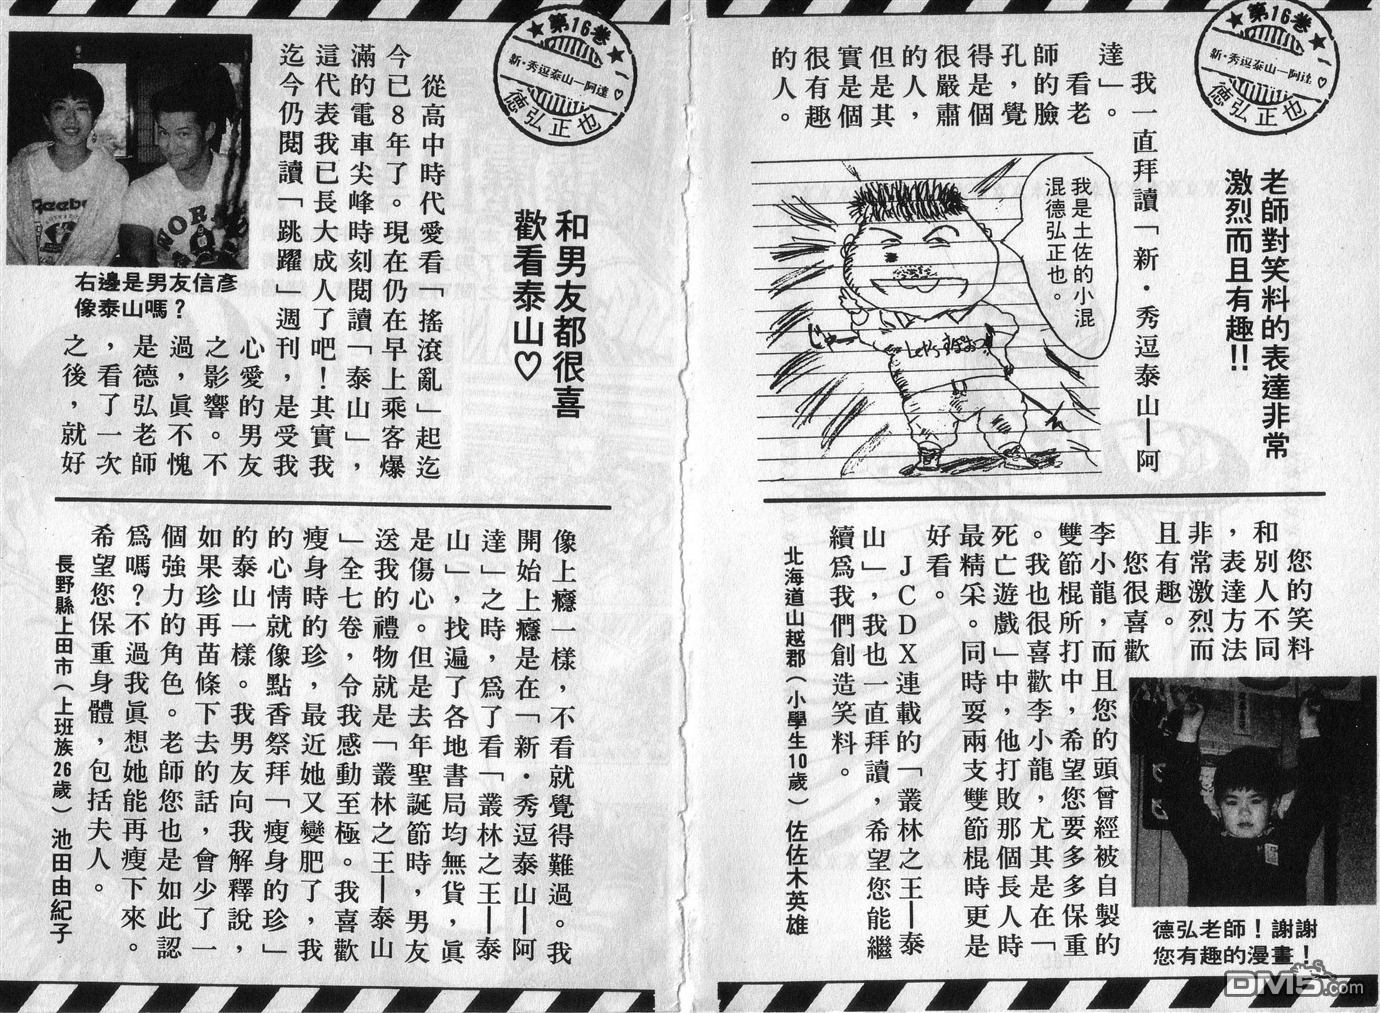 ★第16巻★
新·秀逗泰山—阿達♡
德弘正也
老師對笑料的表達非常
激烈而且有趣!!
我一直拜讀「新·秀逗泰山—阿
達」。
看老
師的臉
孔，覺
得是個
很嚴肅
的人，
但是其
實是個
很有趣
的人。
我是土佐的小混
混德弘正也。
Let's
您的笑料
和別人不同
，表達方法
非常激烈而
且有趣。
您很喜歡
李小龍，而且您的頭曾經被自製的
雙節棍所打中，希望您要多多保重
。我也很喜歡李小龍，尤其是在「
死亡遊戲」中，他打敗那個長人時
最精采。同時耍兩支雙節棍時更是
好看。
JCDX連載的「叢林之王—泰
山」，我也一直拜讀，希望您能繼
續爲我們創造笑料。
北海道山越郡（小學生10歲）佐佐木英雄
德弘老師！謝謝
您有趣的漫畫！
★第16巻★
新·秀逗泰山—阿達♡
德弘正也
和男友都很喜
歡看泰山♡
從高中時代愛看「搖滾亂」起迄
今已8年了。現在仍在早上乘客爆
滿的電車尖峰時刻閱讀「泰山」，
這代表我已長大成人了吧！其實我
迄今仍閱讀「跳躍」週刊，是受我
心愛的男友
之影響。不
過，眞不愧
是德弘老師
，看了一次
之後，就好
右邊是男友信彥
像泰山嗎？
像上癮一樣，不看就覺得難過。我
開始上癮是在「新·秀逗泰山—阿
達」之時，爲了看「叢林之王—泰
山」，找遍了各地書局均無貨，眞
是傷心。但是去年聖誕節時，男友
送我的禮物就是「叢林之王—泰山
」全七卷，令我感動至極。我喜歡
瘦身時的珍，最近她又變肥了，我
的心情就像點香祭拜「瘦身的珍」
的泰山一樣。我男友向我解釋說，
如果珍再苗條下去的話，會少了一
個強力的角色。老師您也是如此認
爲嗎？不過我眞想她能再瘦下來。
希望您保重身體，包括夫人。
長野縣上田市（上班族26歲）池田由紀子
Reebok
DM5.com